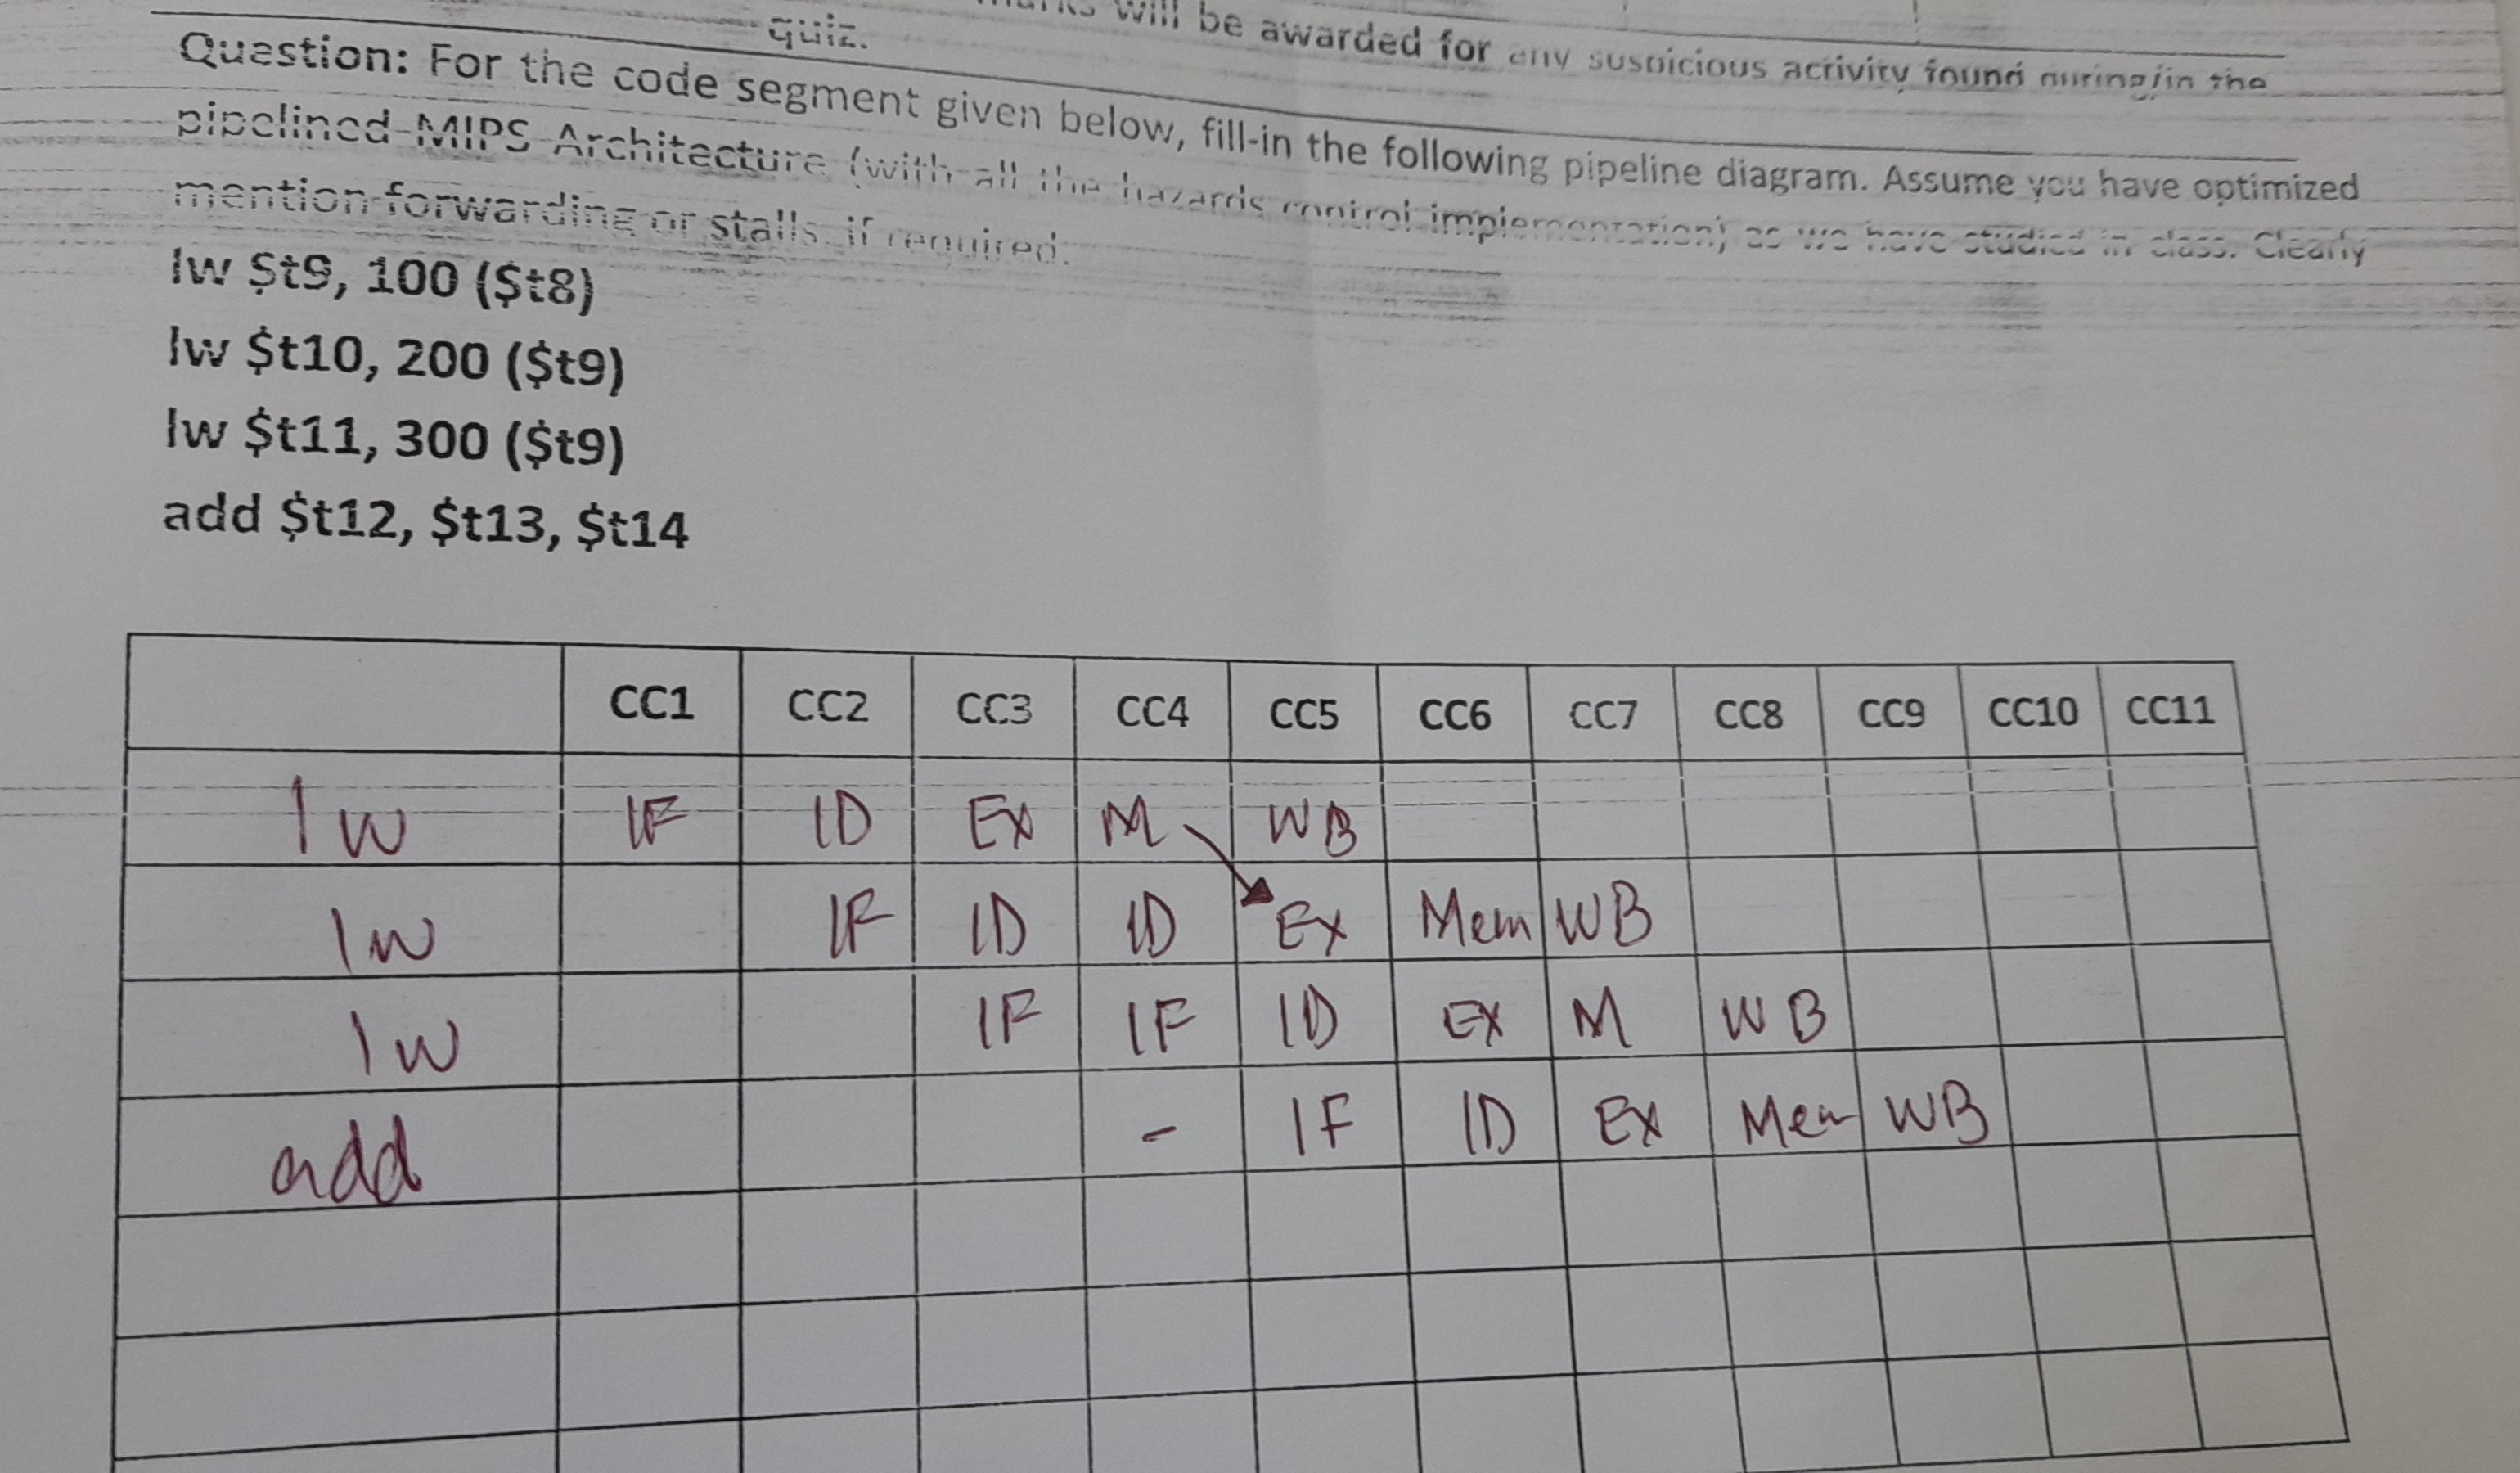 quiz.
marks will be awarded for any suspicious activity found during/in the
Question: For the code segment given below, fill-in the following pipeline diagram. Assume you have optimized
pipelined MIPS Architecture (with all the hazards control implementation) as we have studied in class. Clearly
mention forwarding or stalls if required.
lw $t9, 100 ($t8)
lw $t10, 200 ($t9)
lw $t11, 300 ($t9)
add $t12, $t13, $t14
CC1 CC2 CC3 CC4 CC5 CC6 CC7 CC8 CC9 CC10 CC11
lw IF ID EX M WB
lw IF ID ID EX Mem WB
lw IF IF ID EX M WB
add - IF ID EX Mem WB